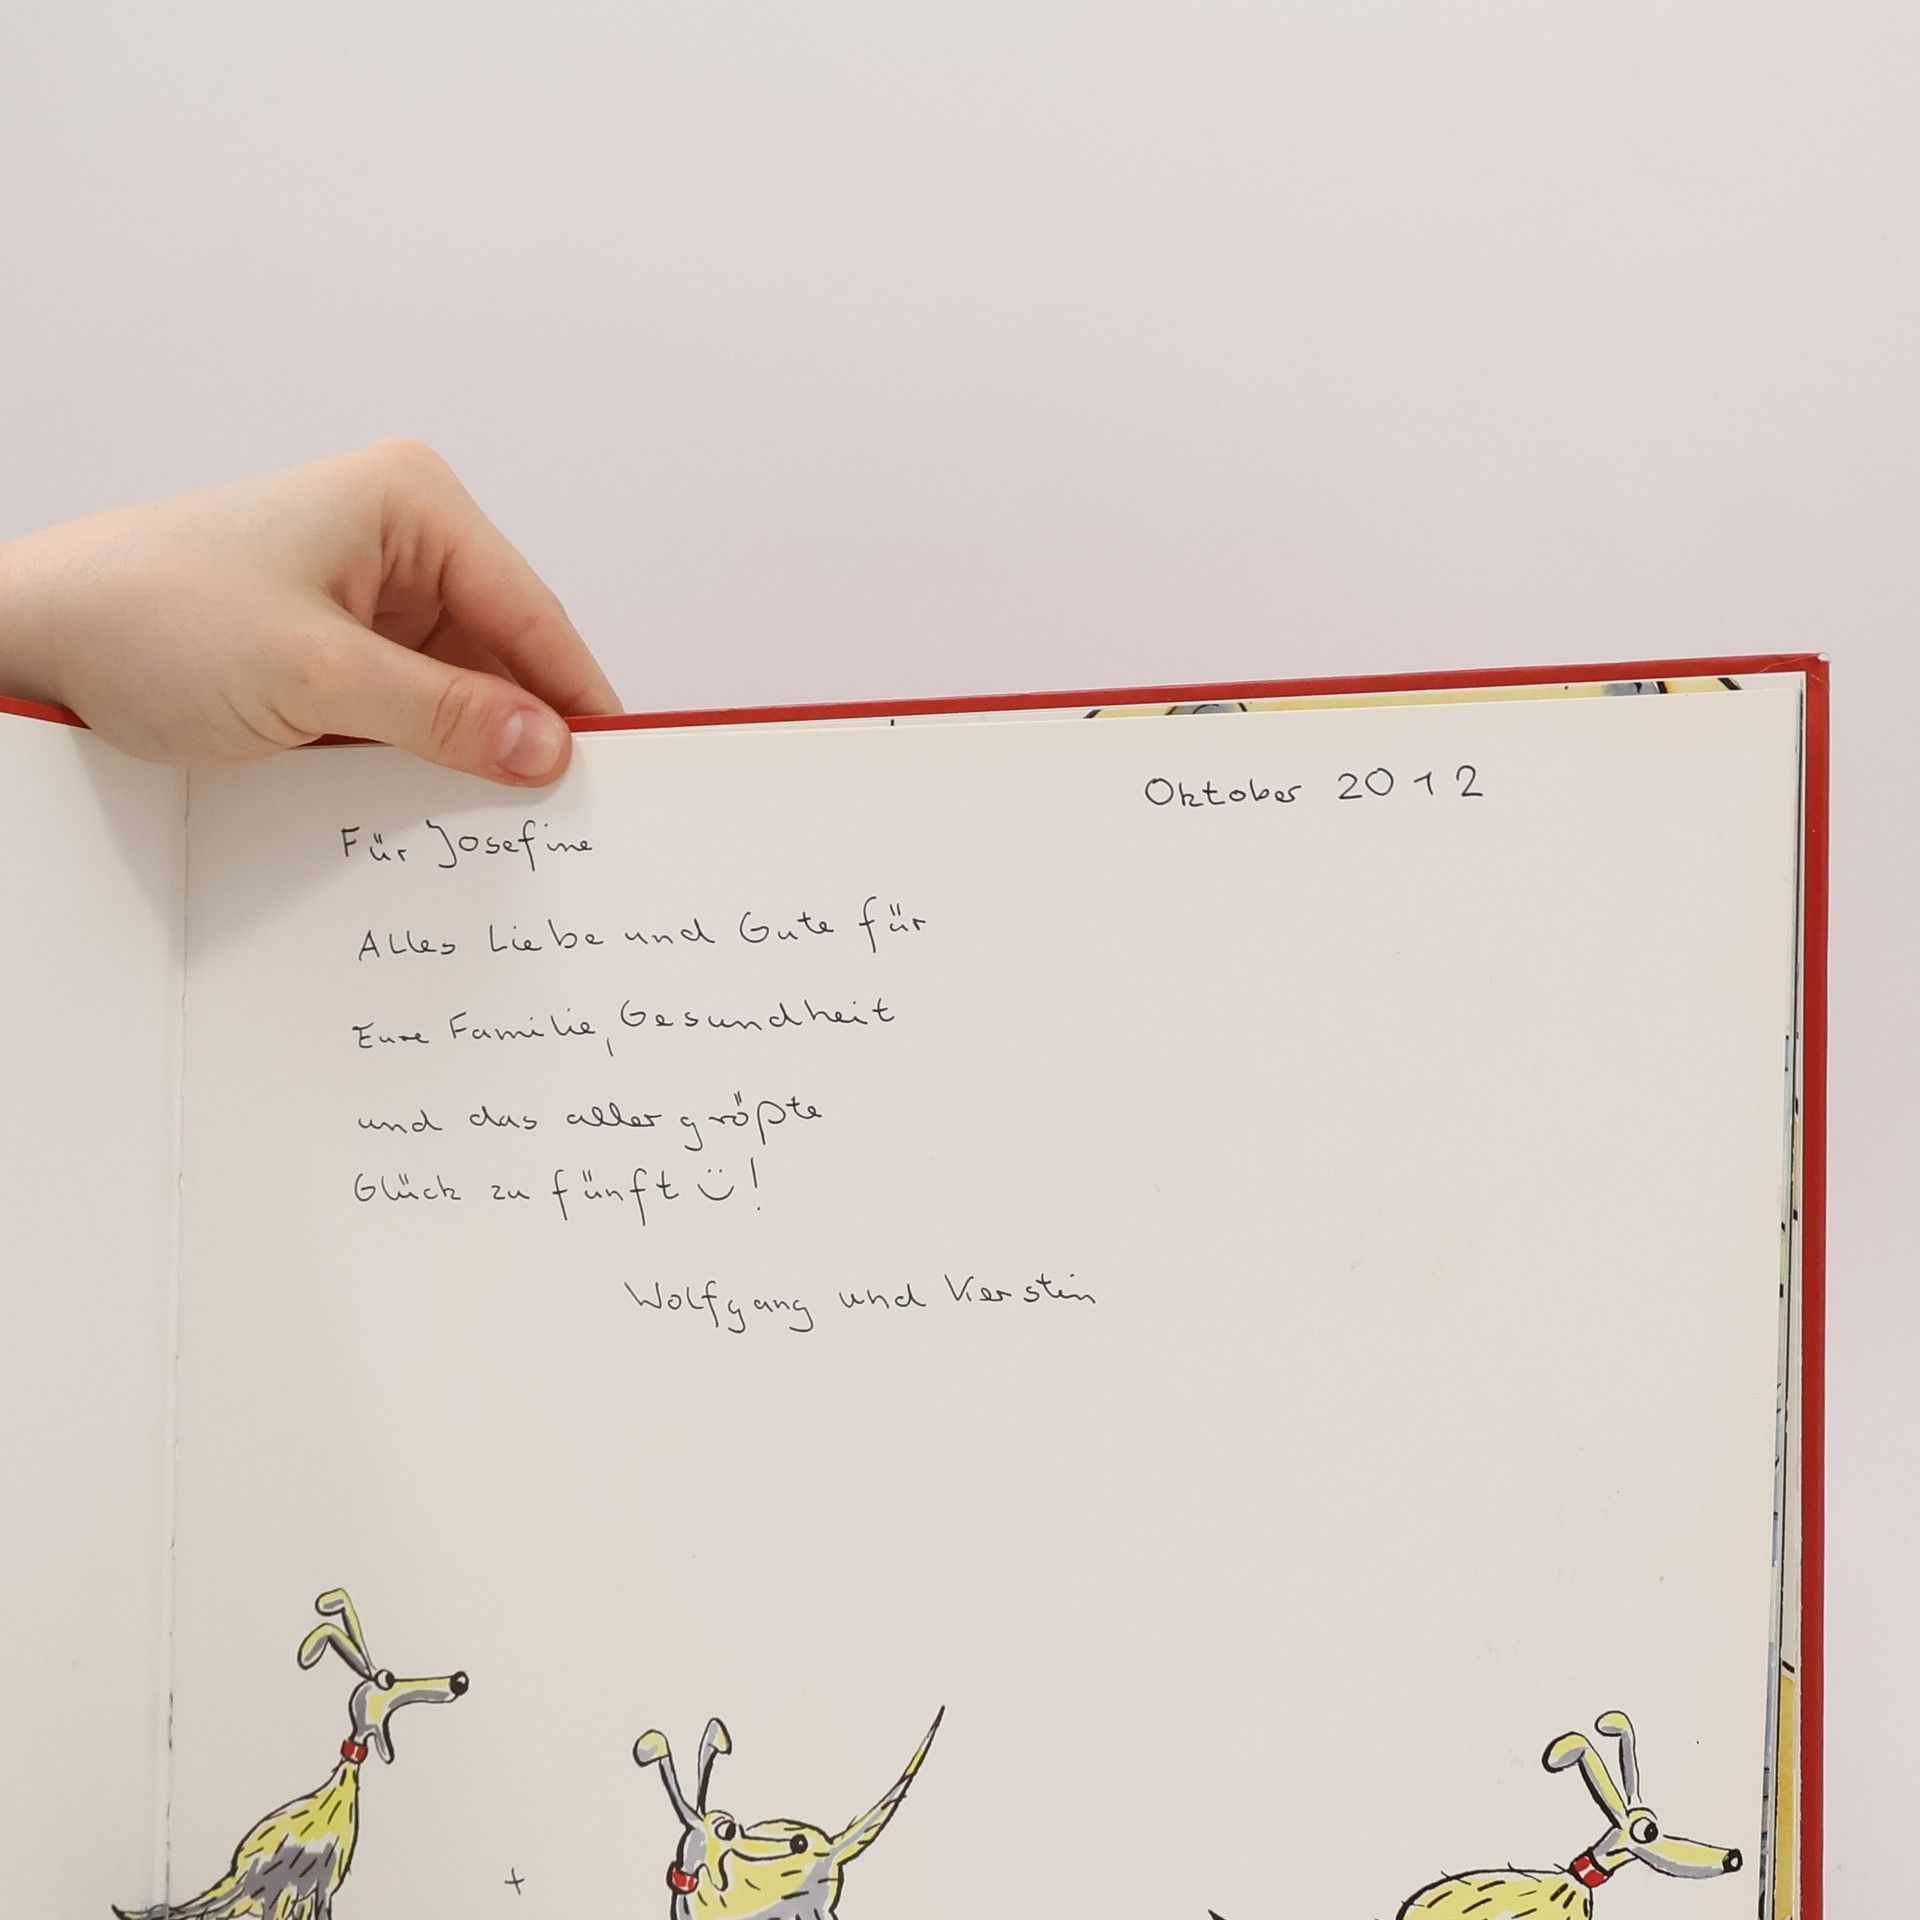 Oktober 2012
Für Josefine
Alles Liebe und Gute für
Eure Familie, Gesundheit
und das aller größte
Glück zu fünft ü!
Wolfgang und Kerstin
+